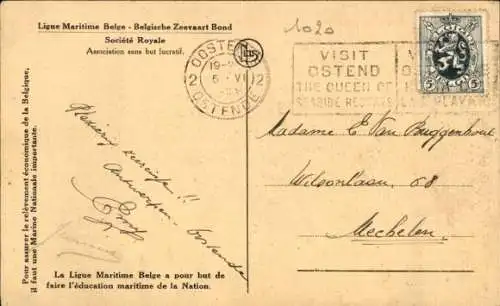 Ligue Maritime Belge - Belgische Zeevaart Bond
Société Royale
Association sans but lucratif.
1020
OOSTENDE
19-
2 6 VI 2
OSTENDE
VISIT
OSTEND
THE QUEEN OF
SEASIDE RESORTS
5 5
Antwerpen - Oostende
Madame E Van Buggenhout
Wilsonlaan 68
Mechelen
Pour assurer le relèvement économique de la Belgique,
il faut une Marine Nationale importante.
La Ligue Maritime Belge a pour but de
faire l'éducation maritime de la Nation.